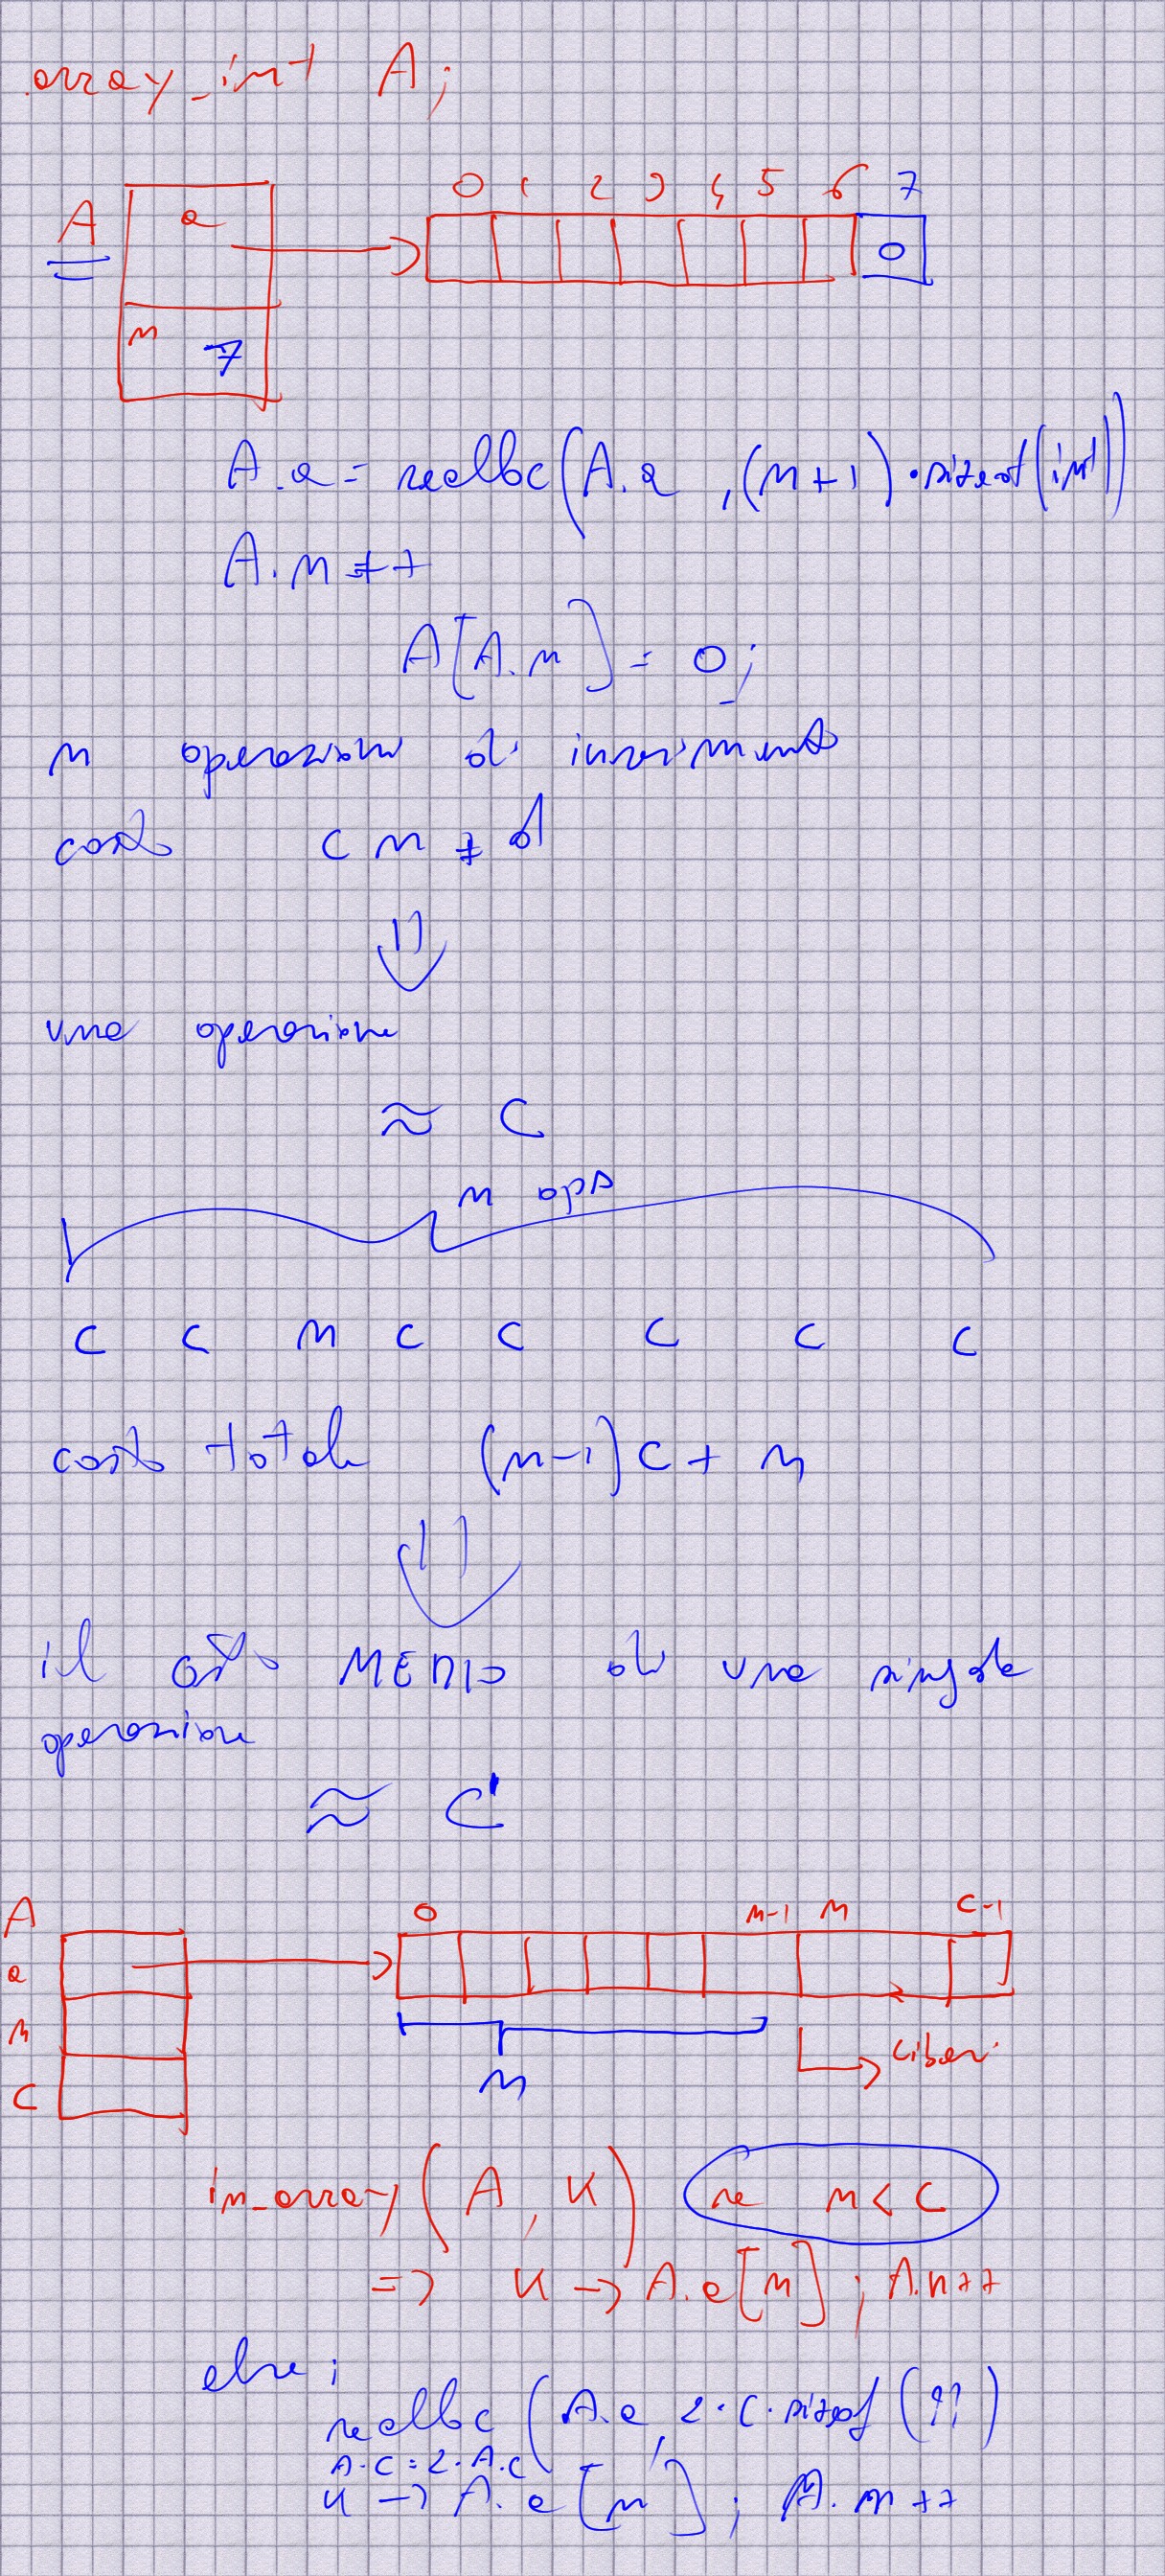 array_int A;
0 1 2 3 4 5 6 7
A a 0
n 7
A.a = realloc(A.a, (n+1)·sizeof(int))
A.n++
A[A.n] = 0;
n operazioni di inserimento
costo c n + d
⇓
una operazione
≈ C
n ops
C C n C C C C C
costo totale (n-1)C + n
⇓
il costo MEDIO di una singola
operazione
≈ C'
A 0 n-1 n C-1
a
n liberi
n
C
in_array(A, K) se n < C
=> K -> A.a[n]; A.n++
else:
realloc(A.a, 2·C·sizeof(!!)
A.C = 2·A.C
K -> A.a[n]; A.n++